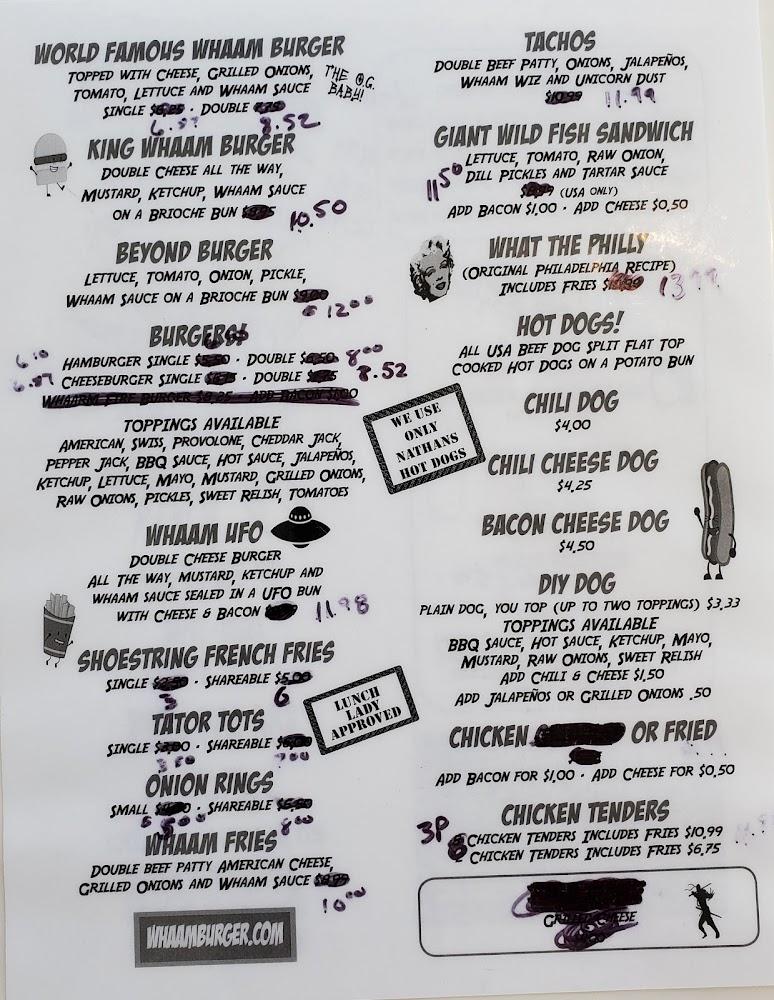 WORLD FAMOUS WHAAM BURGER
TOPPED WITH CHEESE, GRILLED ONIONS,
TOMATO, LETTUCE AND WHAAM SAUCE
THE O.G.
BABY!
SINGLE · DOUBLE
8.52
KING WHAAM BURGER
DOUBLE CHEESE ALL THE WAY,
MUSTARD, KETCHUP, WHAAM SAUCE
ON A BRIOCHE BUN 10.50
BEYOND BURGER
LETTUCE, TOMATO, ONION, PICKLE,
WHAAM SAUCE ON A BRIOCHE BUN
12.00
BURGERS!
6.10 HAMBURGER SINGLE $5.50 · DOUBLE $6.50 8.00
CHEESEBURGER SINGLE · DOUBLE 8.52
WHAARM FIRE BURGER $8.25 ADD BACON $1.00
TOPPINGS AVAILABLE
AMERICAN, SWISS, PROVOLONE, CHEDDAR JACK,
PEPPER JACK, BBQ SAUCE, HOT SAUCE, JALAPEÑOS,
KETCHUP, LETTUCE, MAYO, MUSTARD, GRILLED ONIONS,
RAW ONIONS, PICKLES, SWEET RELISH, TOMATOES
WHAAM UFO
DOUBLE CHEESE BURGER
ALL THE WAY, MUSTARD, KETCHUP AND
WHAAM SAUCE SEALED IN A UFO BUN
WITH CHEESE & BACON 11.98
SHOESTRING FRENCH FRIES
SINGLE $2.50 · SHAREABLE $5.00
3 6
TATOR TOTS
SINGLE $3.00 · SHAREABLE
3 50 7 00
ONION RINGS
SMALL · SHAREABLE
5 00 8 00
WHAAM FRIES
DOUBLE BEEF PATTY AMERICAN CHEESE,
GRILLED ONIONS AND WHAAM SAUCE
10 00
WHAAMBURGER.COM
WE USE
ONLY
NATHANS
HOT DOGS
LUNCH
LADY
APPROVED
TACHOS
DOUBLE BEEF PATTY, ONIONS, JALAPEÑOS,
WHAAM WIZ AND UNICORN DUST
$10.99 11.99
GIANT WILD FISH SANDWICH
LETTUCE, TOMATO, RAW ONION,
DILL PICKLES AND TARTAR SAUCE
11 50 (USA ONLY)
ADD BACON $1.00 · ADD CHEESE $0.50
WHAT THE PHILLY
(ORIGINAL PHILADELPHIA RECIPE)
INCLUDES FRIES 13 99
HOT DOGS!
ALL USA BEEF DOG SPLIT FLAT TOP
COOKED HOT DOGS ON A POTATO BUN
CHILI DOG
$4.00
CHILI CHEESE DOG
$4.25
BACON CHEESE DOG
$4.50
DIY DOG
PLAIN DOG, YOU TOP (UP TO TWO TOPPINGS) $3.33
TOPPINGS AVAILABLE
BBQ SAUCE, HOT SAUCE, KETCHUP, MAYO,
MUSTARD, RAW ONIONS, SWEET RELISH
ADD CHILI & CHEESE $1.50
ADD JALAPEÑOS OR GRILLED ONIONS .50
CHICKEN OR FRIED
ADD BACON FOR $1.00 · ADD CHEESE FOR $0.50
CHICKEN TENDERS
3P CHICKEN TENDERS INCLUDES FRIES $10.99
CHICKEN TENDERS INCLUDES FRIES $6.75
GRILLED CHEESE